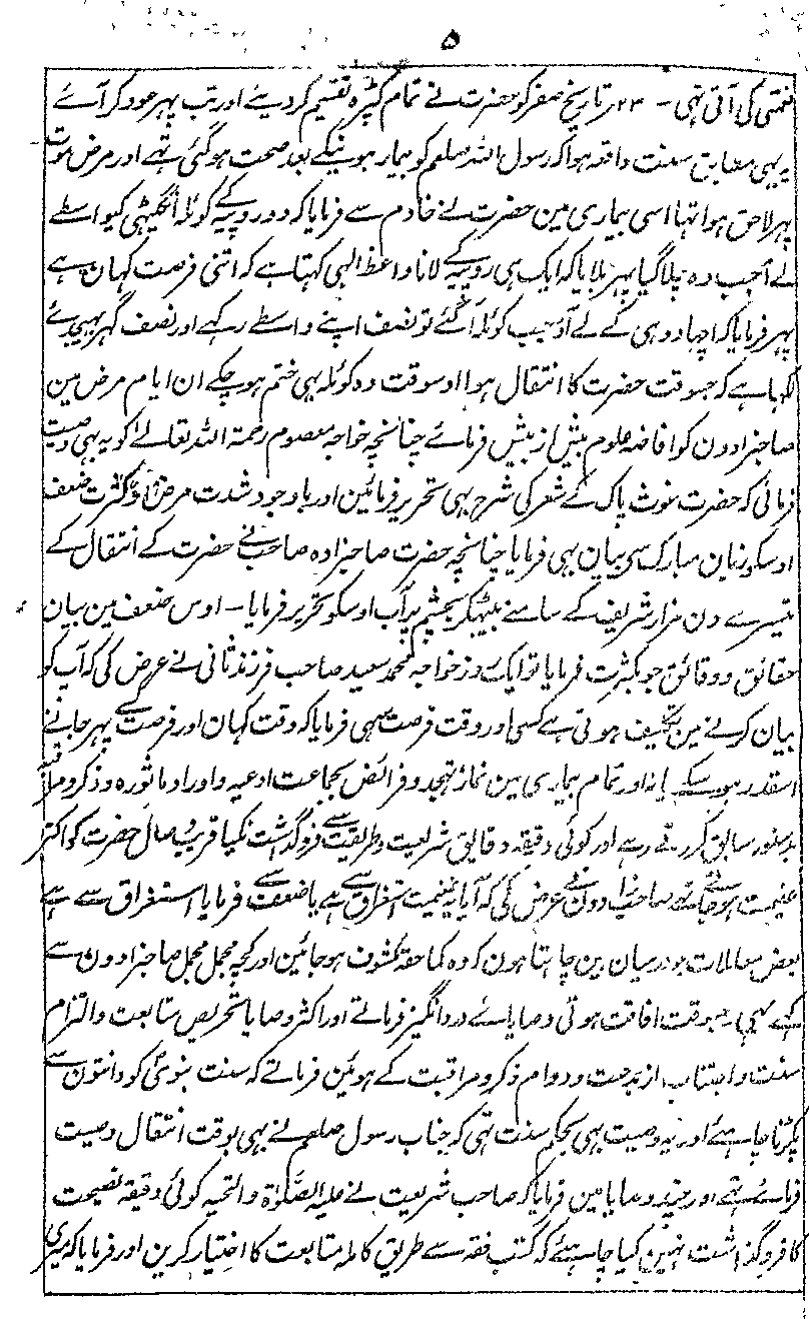 ۵
نعمتی کی آتی تہی - ۲۳؍ تاریخ صفر کو حضرت نے تمام کپڑہ تقسیم کردیئے اور تب پہر عود کر آئے
یہ بہی مطابق سنت واقعہ ہوا کہ رسول اللہ صلعم کو بیمار ہونیکے بعد صحت ہوگئی تہے اور مرض موت
پہر لاحق ہوا تہا اسی بیماری مین حضرت نے خادم سے فرمایا کہ دو روپیہ کے کوئلہ انگیٹہی کیواسطے
لے آ جب وہ چلا گیا پہر بلایا کہ ایک ہی روپیہ کے لانا واعظ الہی کہتا ہے کہ اتنی فرصت کہان ہے
پہر فرمایا کہ اچہا دو ہی کے لے آؤ جب کوئلہ آگئے تو نصف اپنے واسطے رکہے اور نصف گہر بہیجدئے
لکہا ہے کہ جسوقت حضرت کا انتقال ہوا اوسوقت وہ کوئلہ بہی ختم ہوچکے ان ایام مرض مین
صاحبزادون کو افاضہ علوم بیش از بیش فرمائے چنانچہ خواجہ معصوم رحمۃ اللہ تعالے کو یہ بہی وصیت
فرمائی کہ حضرت غوث پاک کے شعر کی شرح بہی تحریر فرمائین اور باوجود شدت مرض اور کثرت ضعف
اوسکو زبان مبارک سے بیان بہی فرمایا چنانچہ حضرت صاحبزادہ صاحب نے حضرت کے انتقال کے
تیسرے دن مزار شریف کے سامنے بیٹہکر بچشم پر آب اوسکو تحریر فرمایا - اوس ضعف مین بیان
حقائق و دقائق جو بکثرت فرمایا تو ایک روز خواجہ محمد سعید صاحب فرزند ثانی نے عرض کی کہ آپ کو
بیان کرنے مین تکلیف ہوتی ہے کسی اور وقت فرصت سہی فرمایا کہ وقت کہان اور فرصت کسے پہر جانے
اسقدر ہوسکے یا نہ اور تمام بیماری مین نماز تہجد و فرائض بجماعت ادعیہ و اوراد ماثورہ و ذکر و مراقبہ
بدستور سابق کرتے رہے اور کوئی دقیقہ دقایق شریعت و طریقت سے فروگذاشت نکیا قریب وصال حضرت کو اکثر
غیبت ہوجاتے صاحبزادون نے عرض کی کہ آیا یہ غیبت استغراق سے ہے یا ضعف سے فرمایا استغراق سے ہے
بعض معاملات درمیان ہین چاہتا ہون کہ وہ کماحقہ مکشوف ہوجائین اور کچہ مجمل مجمل صاحبزادون سے
کہے بہی جسوقت افاقت ہوتی وصایائے درد انگیز فرماتے اور اکثر وصایا تحریص متابعت و التزام
سنت و اجتناب از بدعت و دوام ذکر و مراقبت کے ہوئین فرماتے کہ سنت نبوی کو دانتون سے
پکڑنا چاہیئے اور یہ وصیت بہی بحکم سنت تہی کہ جناب رسول صلعم نے بہی بوقت انتقال وصیت
فرمائے تہے اور چند وصایا مین فرمایا کہ صاحب شریعت نے علیہ الصلوٰۃ والتحیہ کوئی دقیقہ نصیحت
کا فروگذاشت نہین کیا چاہیئے کہ کتب فقہ سے طریق کاملہ متابعت کا اختیار کرین اور فرمایا کہ میری